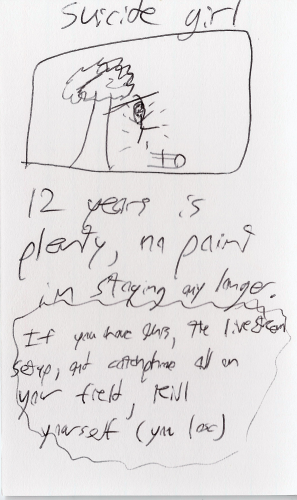 Suicide girl
12 years is
plenty, no point
im staying any longer.
If you have, the livestream
setup, and all on
your field, Kill
yourself (you lose)